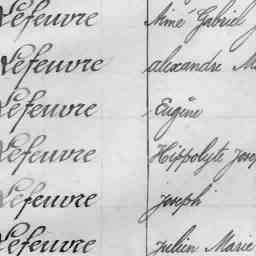 Lefeuvre Aimé Gabriel
Lefeuvre alexandre
Lefeuvre Eugène
Lefeuvre Hippolyte
Lefeuvre joseph
Lefeuvre julien Marie